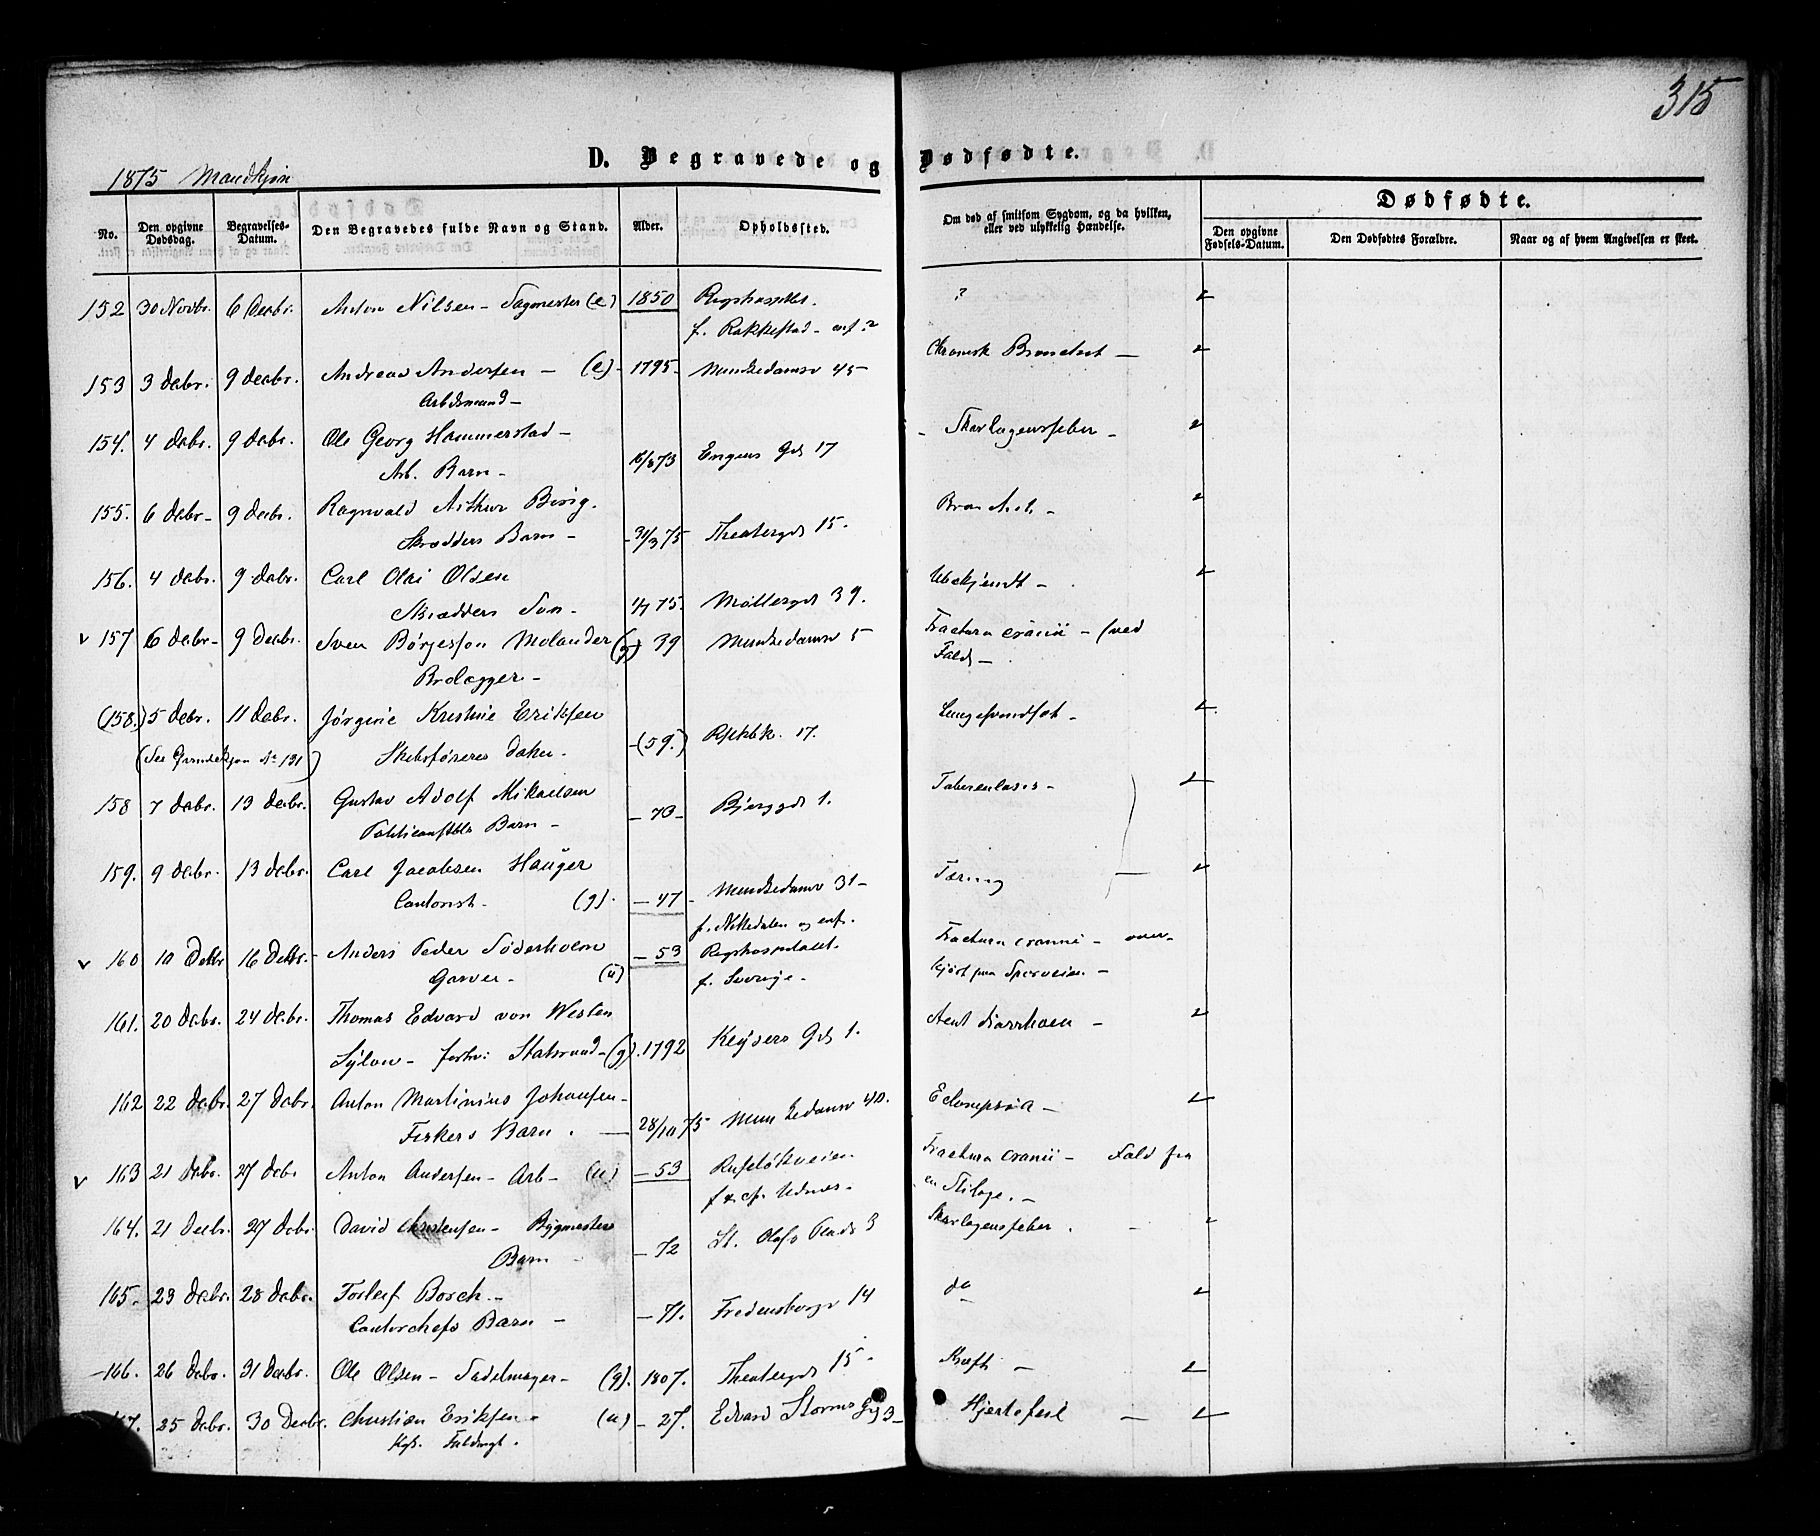 315
D. Begravede og Dødfødte.
1875 Mandkjøn
No. Den opgivne Dødsdag. Begravelses-Datum. Den Begravedes fulde Navn og Stand. Alder. Opholdssted. Om død af smitsom Sygdom, og da hvilken, eller ved ulykkelig Hændelse. Dødfødte.
Den opgivne Fødsels-Datum. Den Dødfødtes Forældre. Naar og af hvem Angivelsen er skeet.
152 30 Novbr. 6 Decbr. Anton Nilsen - Sagmester (e) 1850 Rigshospitlt. ?
f. Rakkestad - enf ?
153 3 decbr. 9 decbr. Andreas Andersen - (e) - 1795 - Munkedamsv 45 Chronisk Bronchit -
Arbdsmand -
154. 4 decbr. 9 decbr. Ole Georg Hammerstad - Skarlagensfeber -
Arb. Barn - 16/8 73 Engens Gd 17
155. 6 decbr - 9 decbr. Ragnvald Arthur Bvig. Bronchit. -
Skrædders Barn - 31/3 75 Theatergd 15.
156. 4 decbr. 9 decbr. Carl Olai Olsen Ubekjendt -
Skrædders Søn - 1/7 75. Møllergd 39.
v 157 6 decbr - 9 decbr. Sven Börjesson Molander (g) 39 Munkedamsv 5 Fractura cranii - (ved
Brolægger - Fald -
(158.) 5 decbr. 11 decbr. Jørgine Kristine Eriksen Lungesvindsot -
(See Qvindekjøn No 131) Skibsføreres datter - - (59.) 17.
158 7 decbr. 13 decbr. Gustav Adolf Mikaelsen Tuberculosis -
Politiconstbls Barn - - 73 - Bjerggd 1.
159. 9 decbr. 13 decbr. Carl Jacobsen Hauger Tæring
Contorist. (g). - 47 - Munkedamsv 31 -
f. Nittedalen og enf.
v 160 10 Decbr 16 Decbr. - Anders Peder Söderholm - 53 Rigshospitalet. Fractura cranii - over-
Garver - (u) f. Sverige - kjørt paa Sporveien -
161. 20 decbr. 24 decbr. Thomas Edvard von Westen Acut diarrhoen -
Sylow - forhv: Statsraad - (g). 1792 Keysers Gd 1.
162 22 decbr. 27 decbr. Anton Martinius Johansen - Eclampsia -
Fiskers Barn . - 28/10 75 Munkedamsv 40.
v 163 21 decbr. 27 decbr Anton Andersen - Arb - (u) - 53 Rufeløkveien Fractura cranii - Fald fra
en Stilage. -
164. 21 decbr. 27 decbr. David Christensen - Bygmesters Skarlagensfeber .
Barn - - 72 St. Olafs Plads 3
165. 23 decbr. 28 decbr. Torleif Borch - do
Contorchefs Barn - - 71. Fredensborgv 14
- 166. 26 decbr. 31 decbr. Ole Olsen - Sadelmager - (g). 1807. Theatergd 15 - Kræft -
167. 25 decbr. 30 Decbr. Christian Eriksen - (u) - 27. Edvard Storms Gd 3 - Hjertefeil -